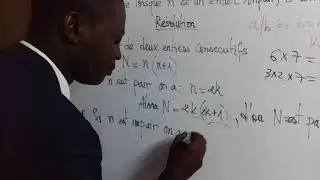 lorsque n est un entier
Résolution
de deux entiers consecutifs
N = n(n+1)
n est pair on a: n = 2k
Alors N = 2k(2k+1), d'où N est pa
Si n est impair on a
a/b
6x7 =
3x2x7 =